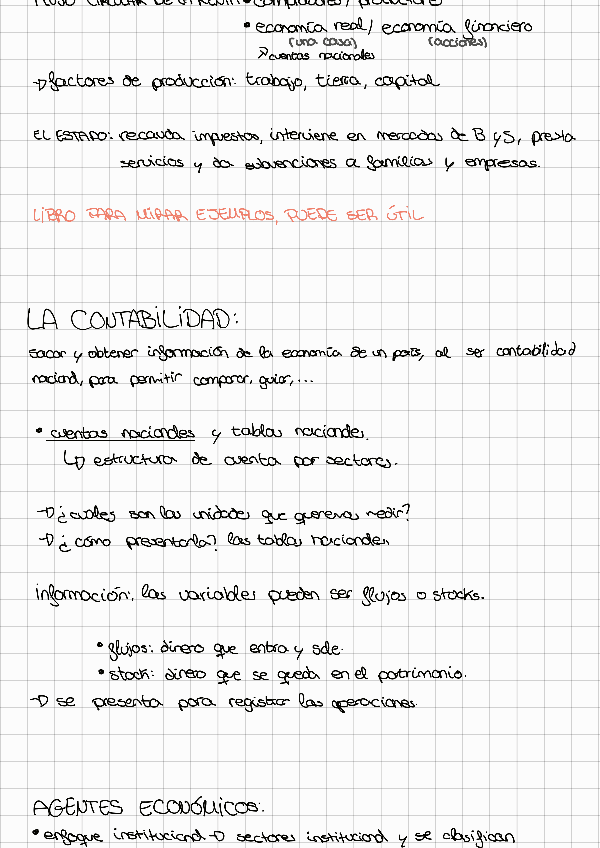 FLUJO CIRCULAR DE LA RENTA: compradores / productores
• economía real / economía financiero
(una casa) (acciones)
↗ cuentas nacionales
→ factores de producción: trabajo, tierra, capital
EL ESTADO: recauda impuestos, interviene en mercados de B y S, presta
servicios y da subvenciones a familias y empresas.
LIBRO PARA MIRAR EJEMPLOS, PUEDE SER ÚTIL
LA CONTABILIDAD:
sacar y obtener información de la economía de un país, al ser contabilidad
nacional, para permitir comparar, guiar,...
• cuentas nacionales y tablas nacionales.
↳ estructura de cuenta por sectores.
→ ¿cuáles son las unidades que queremos medir?
→ ¿cómo presentarla? las tablas nacionales
información: las variables pueden ser flujos o stocks.
• flujos: dinero que entra y sale.
• stock: dinero que se queda en el patrimonio.
→ se presenta para registrar las operaciones.
AGENTES ECONÓMICOS:
• enfoque institucional → sectores institucional y se clasifican